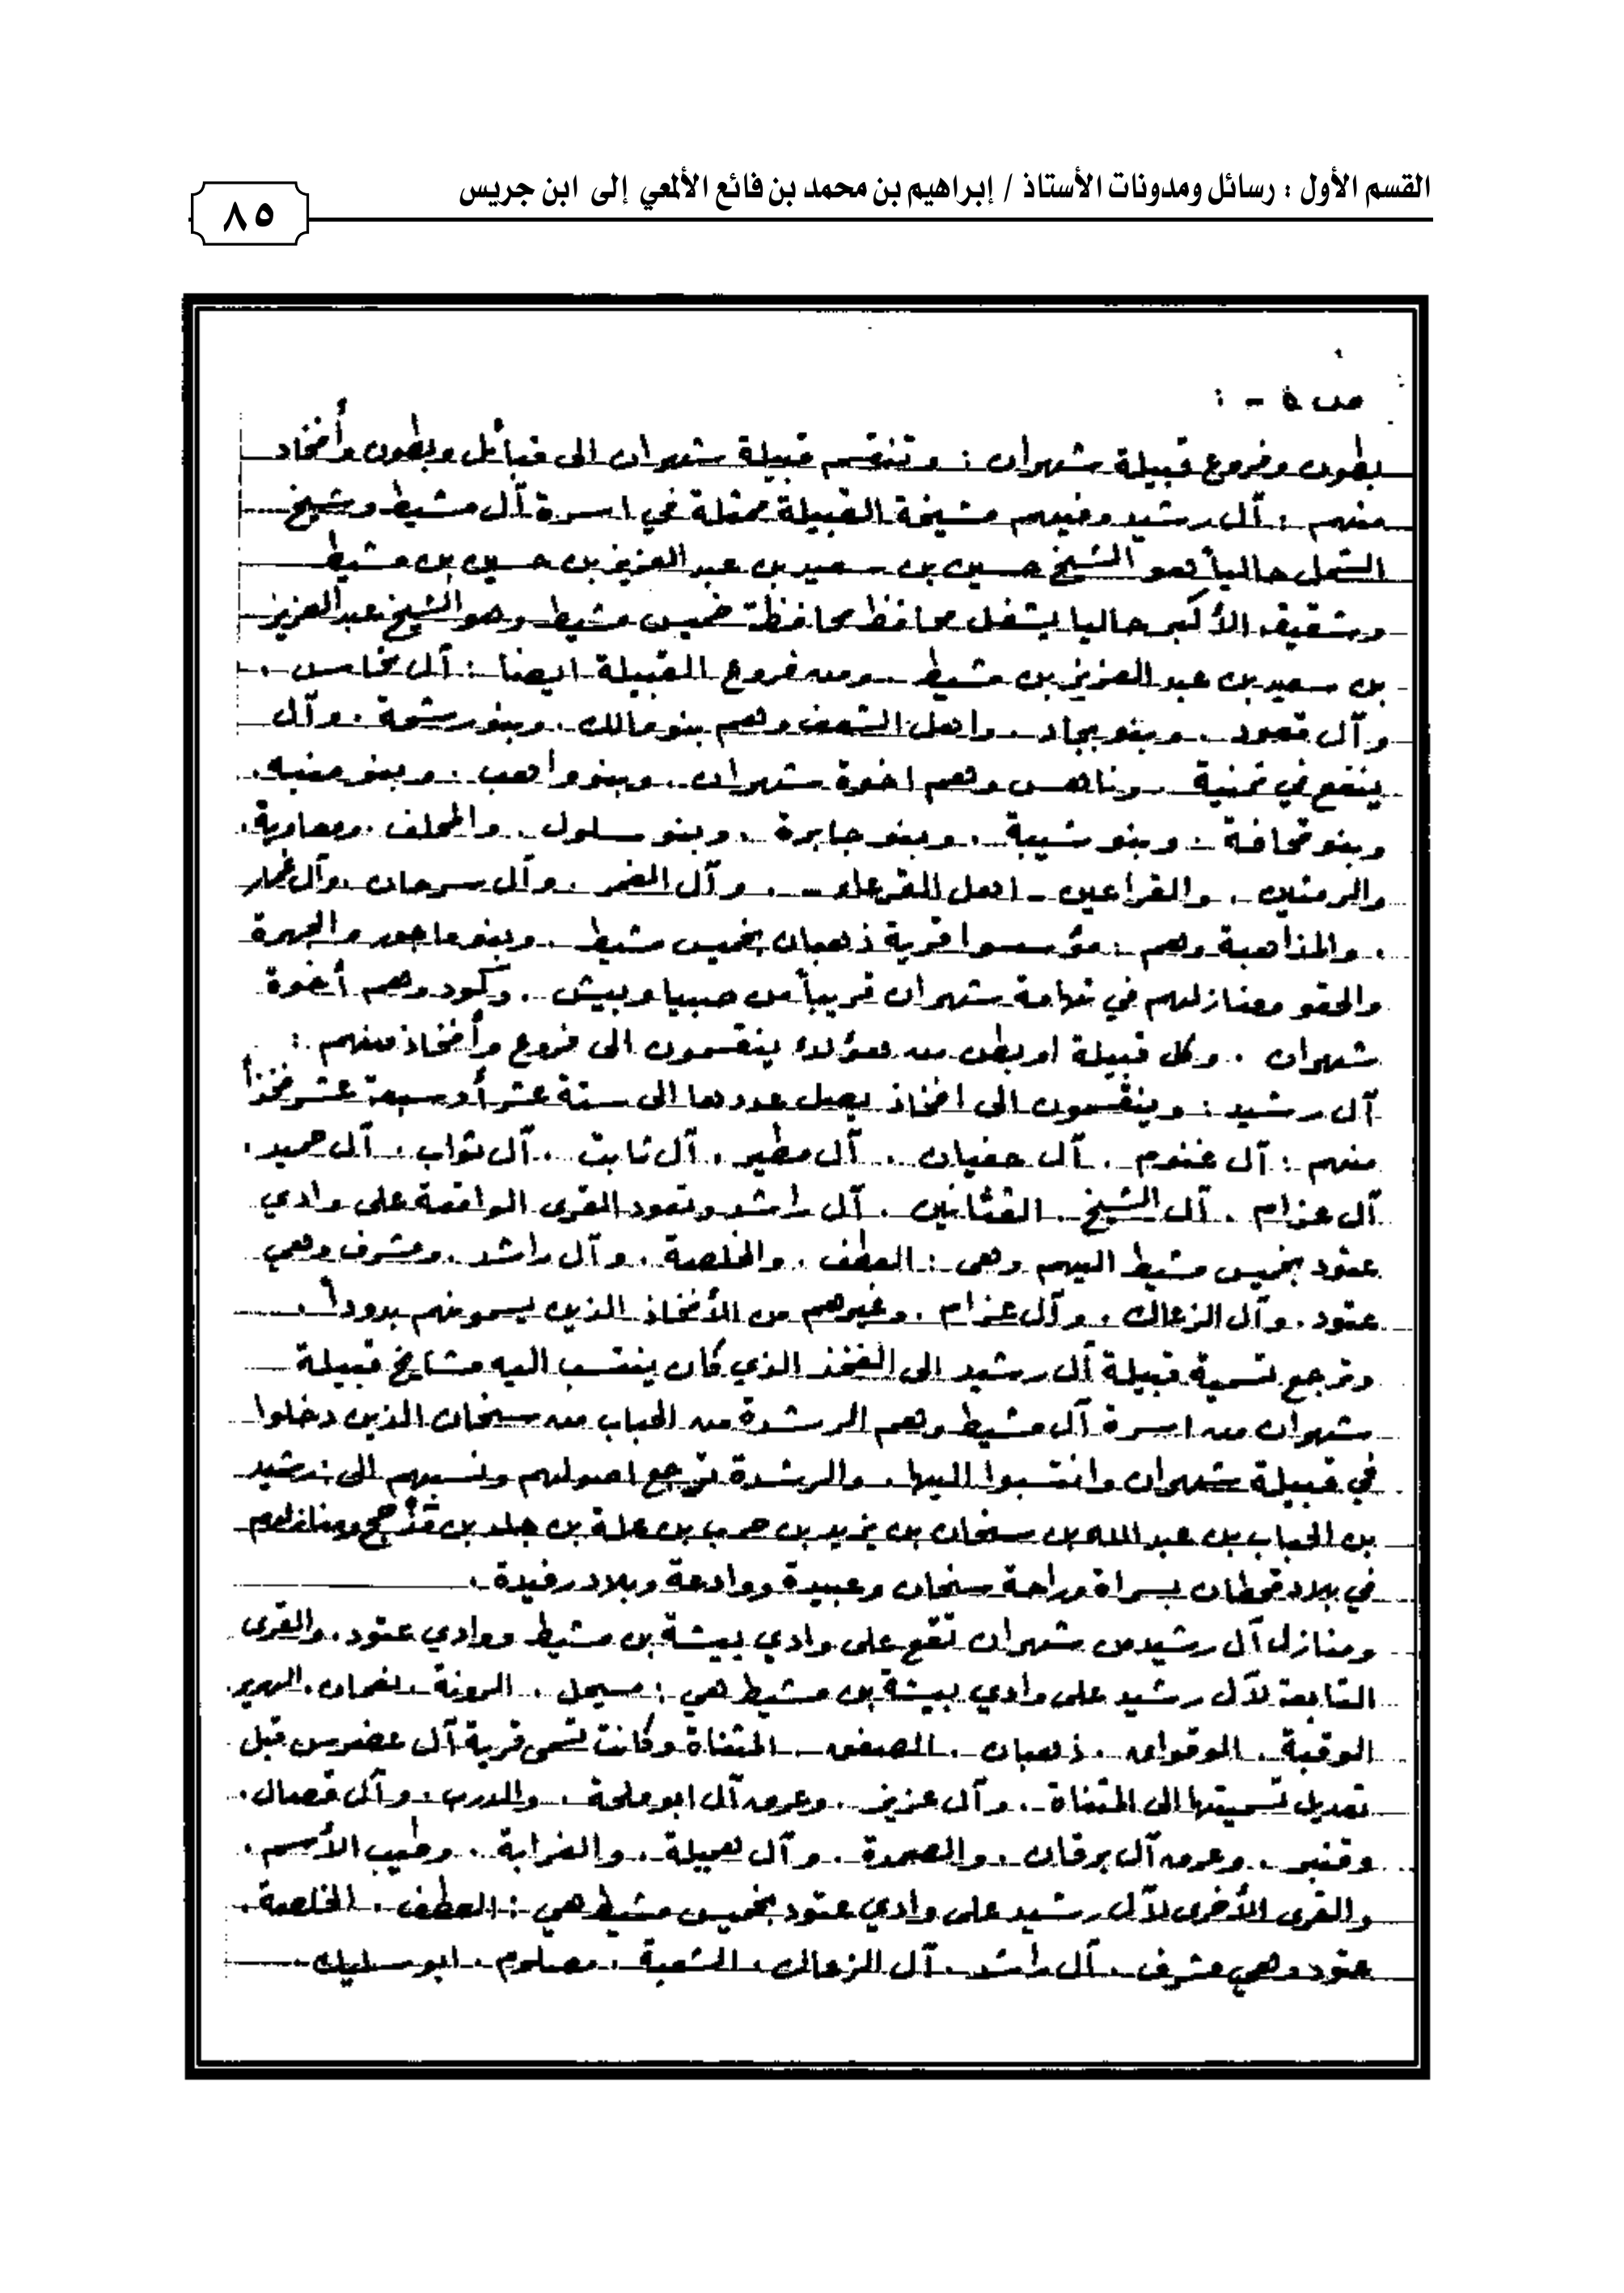 القسم الأول : رسائل ومدونات الأستاذ / إبراهيم بن محمد بن فائع الألمعي إلى ابن جريس
٨٥
ص ٥ - :
بطون وفروع قبيلة شهران : وتنقسم قبيلة شهران الى قبائل وبطون وأفخاد
منهم : آل رشيد وفيهم مشيخة القبيلة ممثلة في اسرة آل مشيط وشيخ
الشمل حالياً هو الشيخ حسين بن سعيد بن عبد العزيز بن حسين بن مشيط
وشقيقه الأكبر حاليا يشغل محافظ محافظة خميس مشيط وهو الشيخ عبد العزيز
بن سعيد بن عبد العزيز بن مشيط . ومن فروع القبيلة ايضا :
وآل قعود . وبنو بجاد . واهل الشعف وهم بنو مالك . وبنو رشحة . وآل
ينفع في تمنية . وناهس وهم اخوة شهران . وبنو واهب . وبنو منبه .
وبنو قحافة . وبنو شيبة . وبنو جابرة . وبنو سلول . والمحلف . ومعاوية .
والرمثين . والقراعين - اهل القرعاء - . وآل الغمر . وآل سرحان . وآل عمار
. والمذاهبة وهم : مؤسسوا قرية ذهبان بخميس مشيط . وبنو ماجور والجهرة
والحقو ومنازلهم في تهامة شهران قريباً من صبيا وبيش . وكود وهم أخوة
شهران . وكل قبيلة او بطن من هؤلاء ينقسمون الى فروع وأفخاذ منهم :
آل رشيد : وينقسمون الى افخاذ يصل عددها الى ستة عشر أو سبعة عشر فخذاً
منهم : آل غنوم . آل حفيان . آل مطير . آل ثابت . آل ثواب . آل حميد .
آل عزام . آل الشيخ . القثانين . آل راشد وتعود القرى الواقعة على وادي
عتود بخميس مشيط اليهم وهي : العطف . والخلصة . وآل راشد . ومشرف وهي
عتود . وآل الزعالك . وآل عزام . وغيرهم من الأفخاذ الذين يسمونهم بدوداً .
وترجع تسمية قبيلة آل رشيد الى الفخذ الذي كان ينتسب اليه مشايخ قبيلة
شهران من اسرة آل مشيط وهم الرشدة من الحباب من سنحان الذين دخلوا
في قبيلة شهران وانتسبوا اليها . والرشدة ترجع اصولهم ونسبهم الى : رشيد
بن الحباب بن عبد الله بن سنحان بن يزيد بن حرب بن علة بن جلد بن مذحج ومنازلهم
في بلاد قحطان بسراة وراحة سنحان وعبيدة ووادعة وبلاد رفيدة .
ومنازل آل رشيد من شهران تقع على وادي بيشة بن مشيط ووادي عتود . والقرى
التابعة لآل رشيد على وادي بيشة بن مشيط هي : مسيحل . الرونة . نعمان . الهرير
الوقبة . . ذهبان . الصفق . المثناة وكانت تسمى قرية آل عضرس قبل
تعديل تسميتها الى المثناة . وآل عزيز . وعرق آل ابو ملحة . والدرب . وآل قصال .
وقنبر . وعرق آل برقان . والصمدة . وآل هميلة . والغرابة . وطيب الأسم .
والقرى الأخرى لآل رشيد على وادي عتود بخميس مشيط هي : العطف . الخلصة .
عتود وهي مشرف . آل راشد . آل الزعالك . الشعبة . مصلوم . ابو سليك .